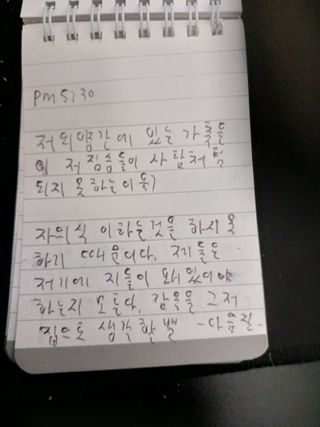 PM 5:30
저 외양간에 있는 가축들
이 저 짐승들이 사람처럼
되지 못하는 이유)
자의식 이라는것을 하지 못
하기 때문이다. 저들은
저기에 지들이 왜 있어야
하는지 모른다. 감옥을 그저
집으로 생각할 뿐 -다음질.